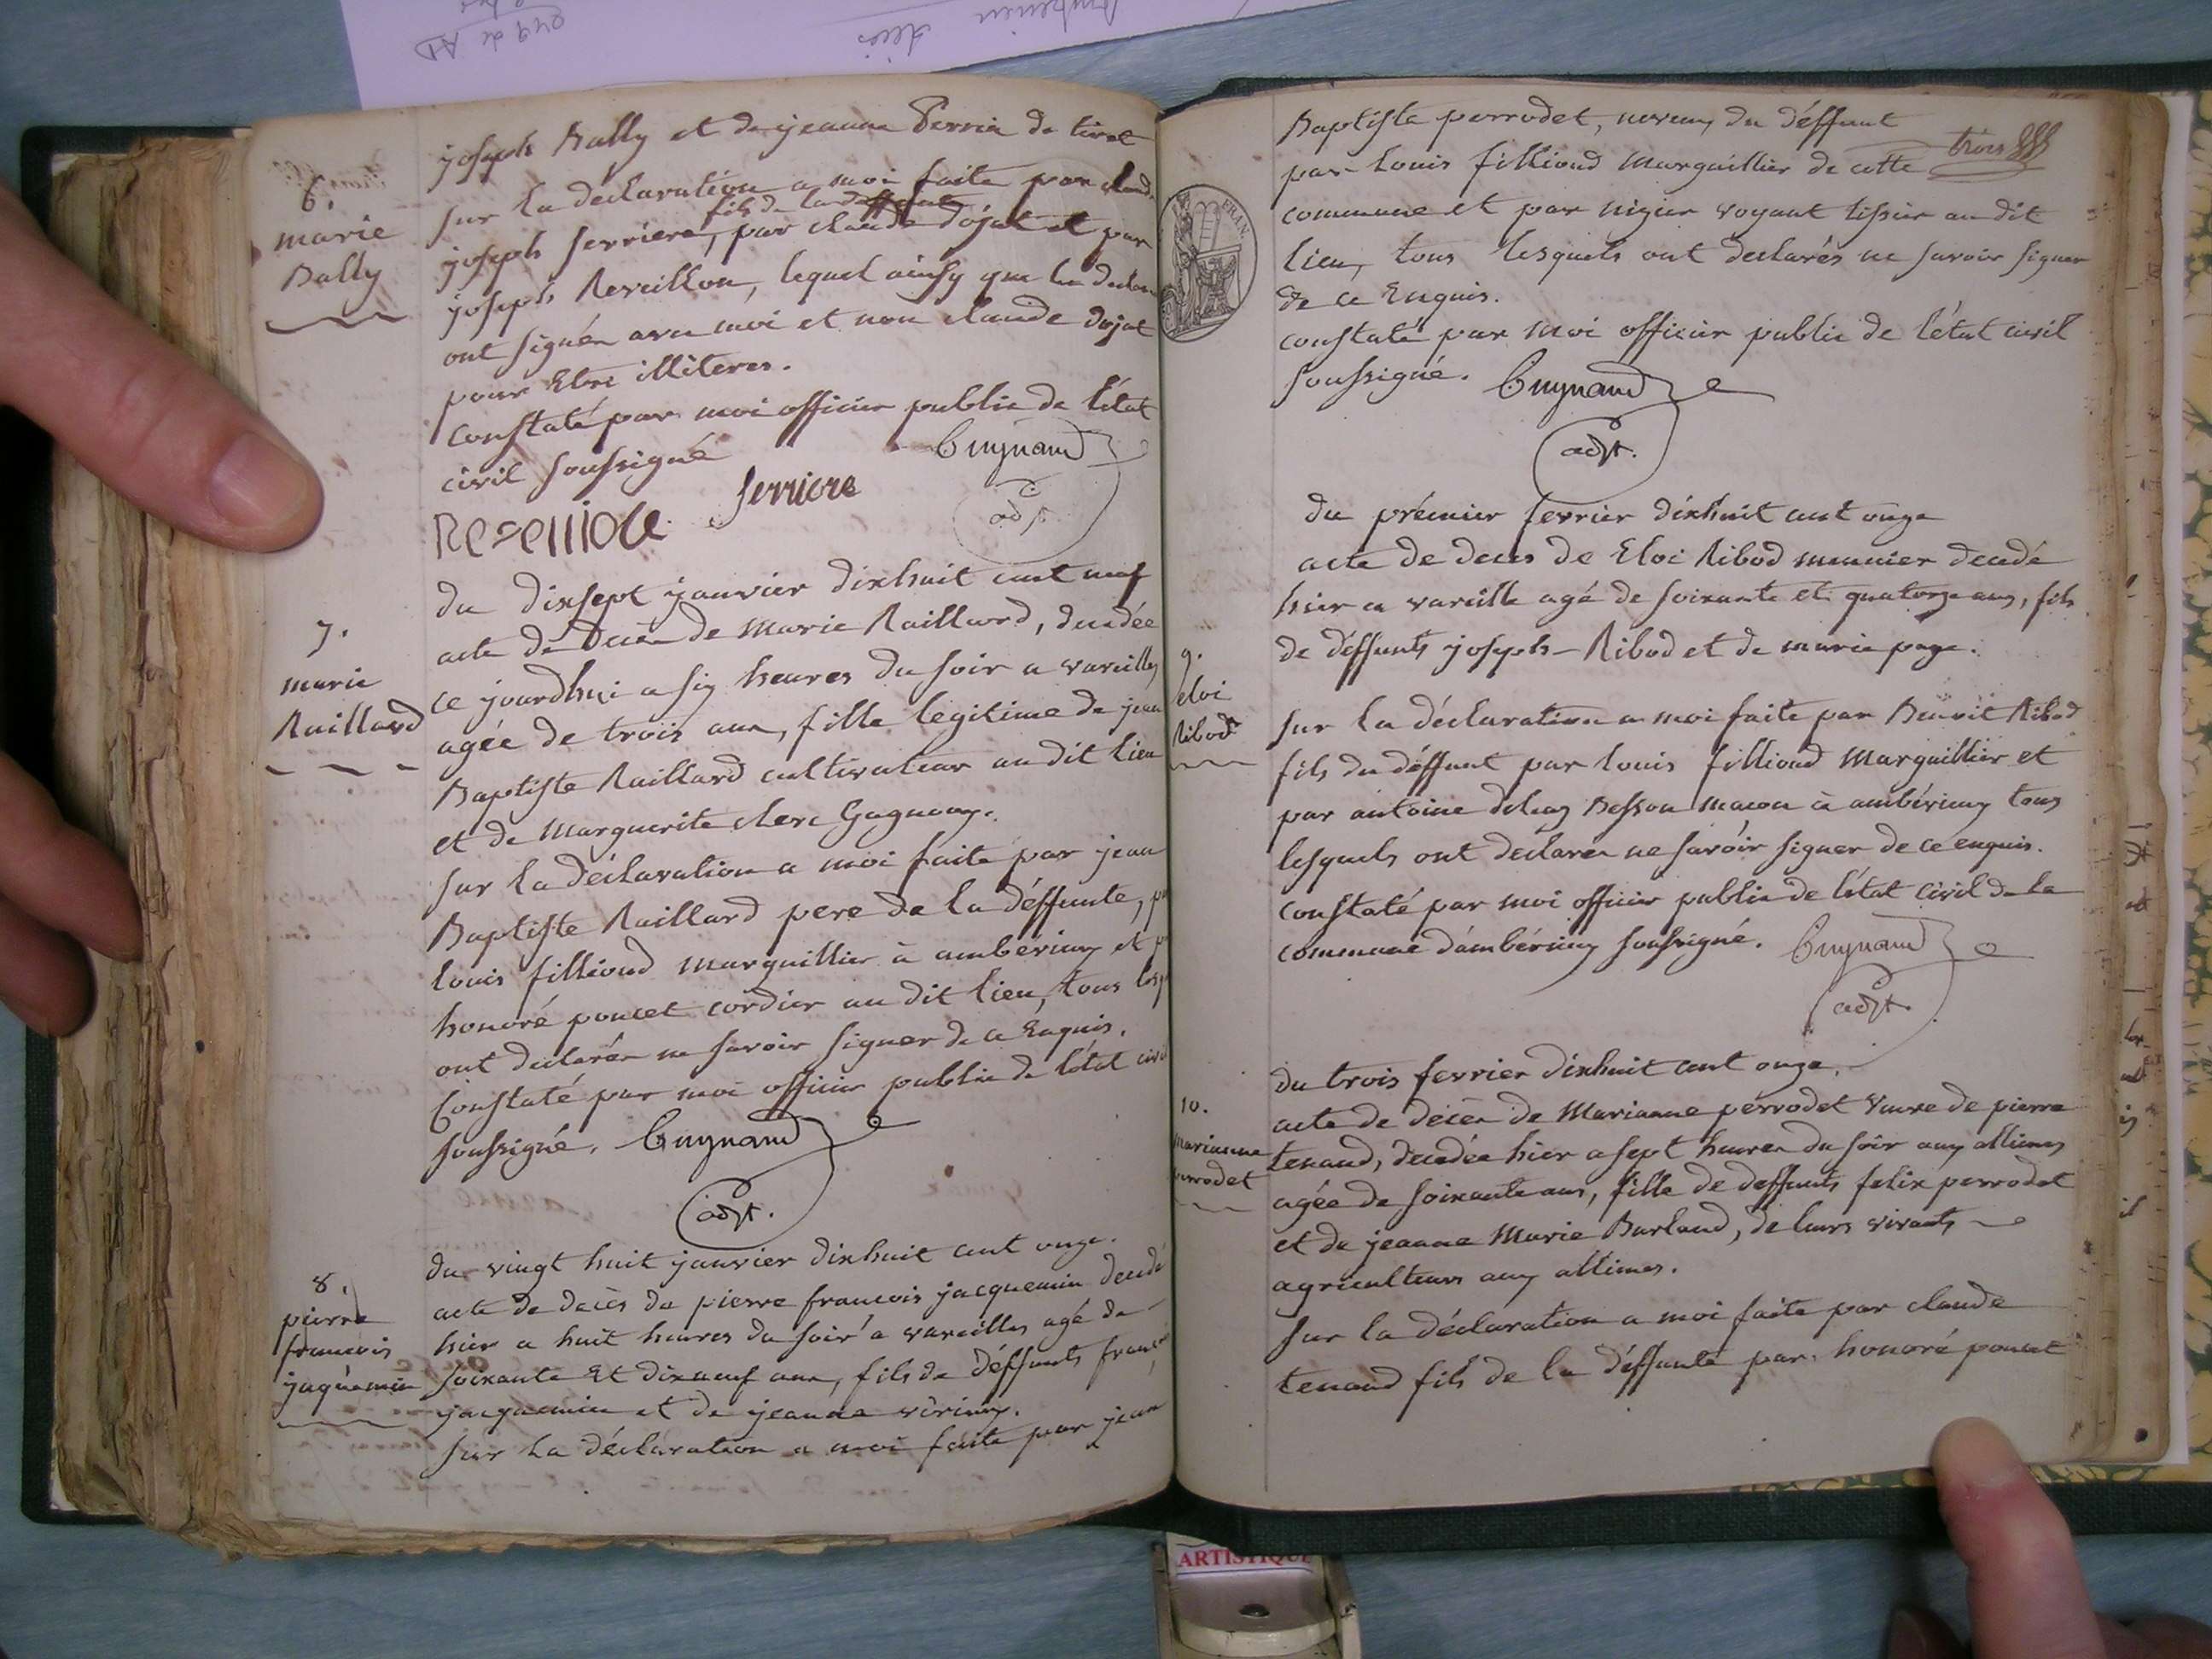 joseph Bally et de jeanne Perrin de tiret
6.
marie
Bally
sur la déclaration a moi faite par claude
fils de la deffunte
joseph ferriere, par claude dojat et par
joseph Reveillon, lequel ainsy que le declar
ont signés avec moi et non claude dojat
pour Etre illiteres.
Constaté par moi officier public de l'état
civil soussigné
Guynand
ferriere
adjt.
du dixsept janvier dixhuit cent
7.
marie
Raillard
acte de Décès de Marie Raillard, decedée
ce jourdhui a six heures du soir a vareilles
agée de trois ans, fille legitime de jean
Baptiste Raillard cultivateur au dit lieu
et de Marguerite clerc Gagneux.
sur la déclaration a moi faite par jean
Baptiste Raillard pere de la déffunte, pa
louis fillioud marguillier à ambérieux et p
honoré poncet cordier au dit lieu, tous lesq
ont declarés ne savoir signer de ce Enquis.
Constaté par moi officier public de l'état civil
soussigné. Guynand
adjt.
du vingt huit janvier dixhuit cent onze.
8.
pierre
francois
jaquemin
acte de décès de pierre francois jacquemin decedé
hier a huit heures du soir a vareilles agé de
soixante Et dixneuf ans, fils de déffunts franc
jacquemin et de jeanne
sur la déclaration a moi faite par jean
trois
Baptiste perrodet, neveux du déffunt
par louis fillioud Marguillier de cette
commune et par nizier voyant tissier au dit
lieu, tous lesquels ont declarés ne savoir signer
de ce Enquis.
constaté par moi officier public de l'état civil
soussigné. Guynand
adjt.
FRAN.
du prémier fevrier dixhuit cent onze
9.
éloi
Ribod
acte de deces de Eloi Ribod meunier decedé
hier a vareille agé de soixante et quatorze ans, fils
de déffunts joseph Ribod et de marie page.
sur la déclaration a moi faite par Benoit Ribod
fils du déffunt par louis fillioud Marguillier et
par antoine Besson macon à ambérieux tous
lesquels ont declarer ne savoir signer de ce enquis.
constaté par moi officier public de l'état civil de la
commune d'ambérieux soussigné. Guynand
adjt.
du trois fevrier dixhuit cent onze.
10.
marianne
perrodet
acte de décès de Marianne perrodet veuve de pierre
tenand, decedée hier a sept heures du soir aux allimes
agée de soixante ans, fille de deffunts felix perrodet
et de jeanne Marie Burland, de leurs vivants
agriculteurs aux allimes.
sur la déclaration a moi faite par claude
tenand fils de la déffunte par honoré poncet
ARTISTIQUE